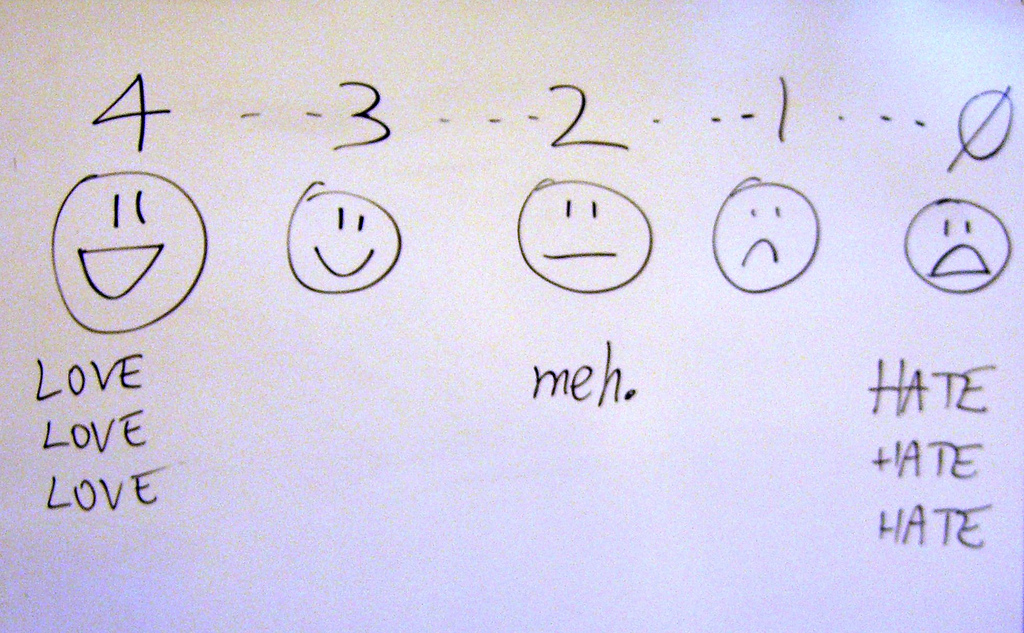 4 -- 3 ---- 2 . .-- 1 . --- Ø
LOVE
LOVE
LOVE
meh.
HATE
HATE
HATE